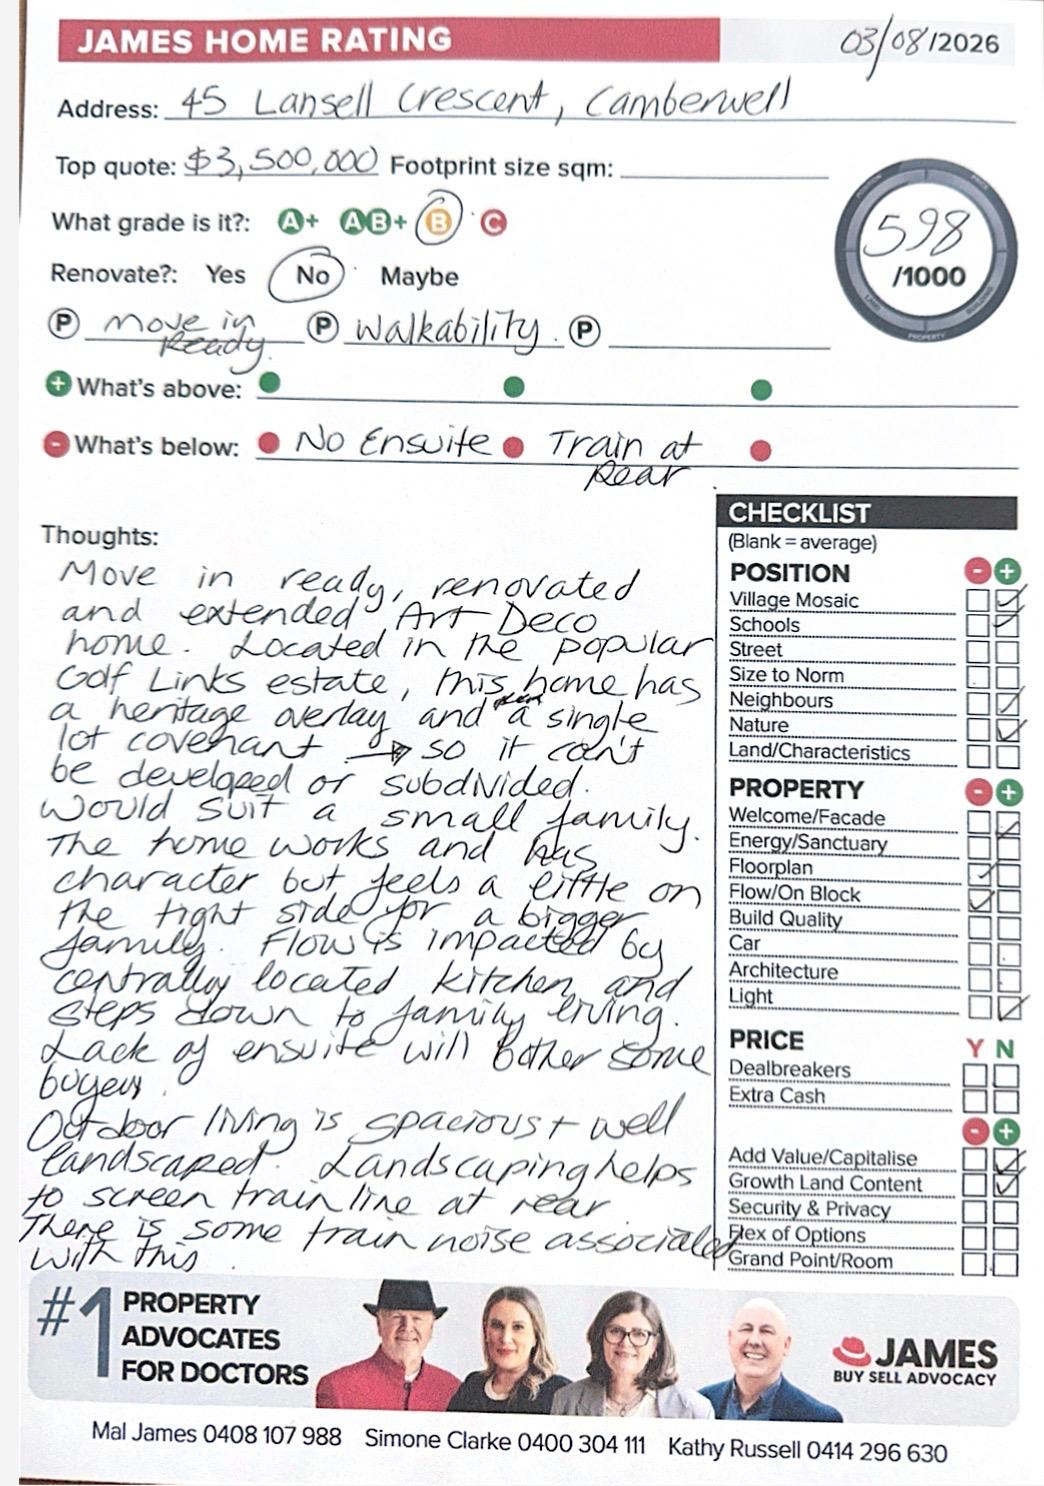 JAMES HOME RATING
03/08/2026
Address: 45 Lansell Crescent, Camberwell
Top quote: $3,500,000 Footprint size sqm:
598
/1000
What grade is it?: A+ AB+ B C
Renovate?: Yes No Maybe
P Move in Ready. P Walkability. P
+ What's above:
- What's below: No Ensuite Train at Rear
Thoughts:
Move in ready, renovated
and extended Art Deco
home. Located in the popular
Golf Links estate, this home has
a heritage overlay and a single
lot covenant → so it can't
be developed or subdivided.
Would suit a small family.
The home works and has
character but feels a little on
the tight side for a bigger
family. Flow is impacted by
centrally located kitchen and
steps down to family living.
Lack of ensuite will bother some
buyers.
Outdoor living is spacious + well
landscaped. Landscaping helps
to screen train line at rear
There is some train noise associated
with this.
CHECKLIST
(Blank = average)
POSITION - +
Village Mosaic
Schools
Street
Size to Norm
Neighbours
Nature
Land/Characteristics
PROPERTY - +
Welcome/Facade
Energy/Sanctuary
Floorplan
Flow/On Block
Build Quality
Car
Architecture
Light
PRICE Y N
Dealbreakers
Extra Cash
- +
Add Value/Capitalise
Growth Land Content
Security & Privacy
Flex of Options
Grand Point/Room
#1 PROPERTY
ADVOCATES
FOR DOCTORS
JAMES
BUY SELL ADVOCACY
Mal James 0408 107 988 Simone Clarke 0400 304 111 Kathy Russell 0414 296 630